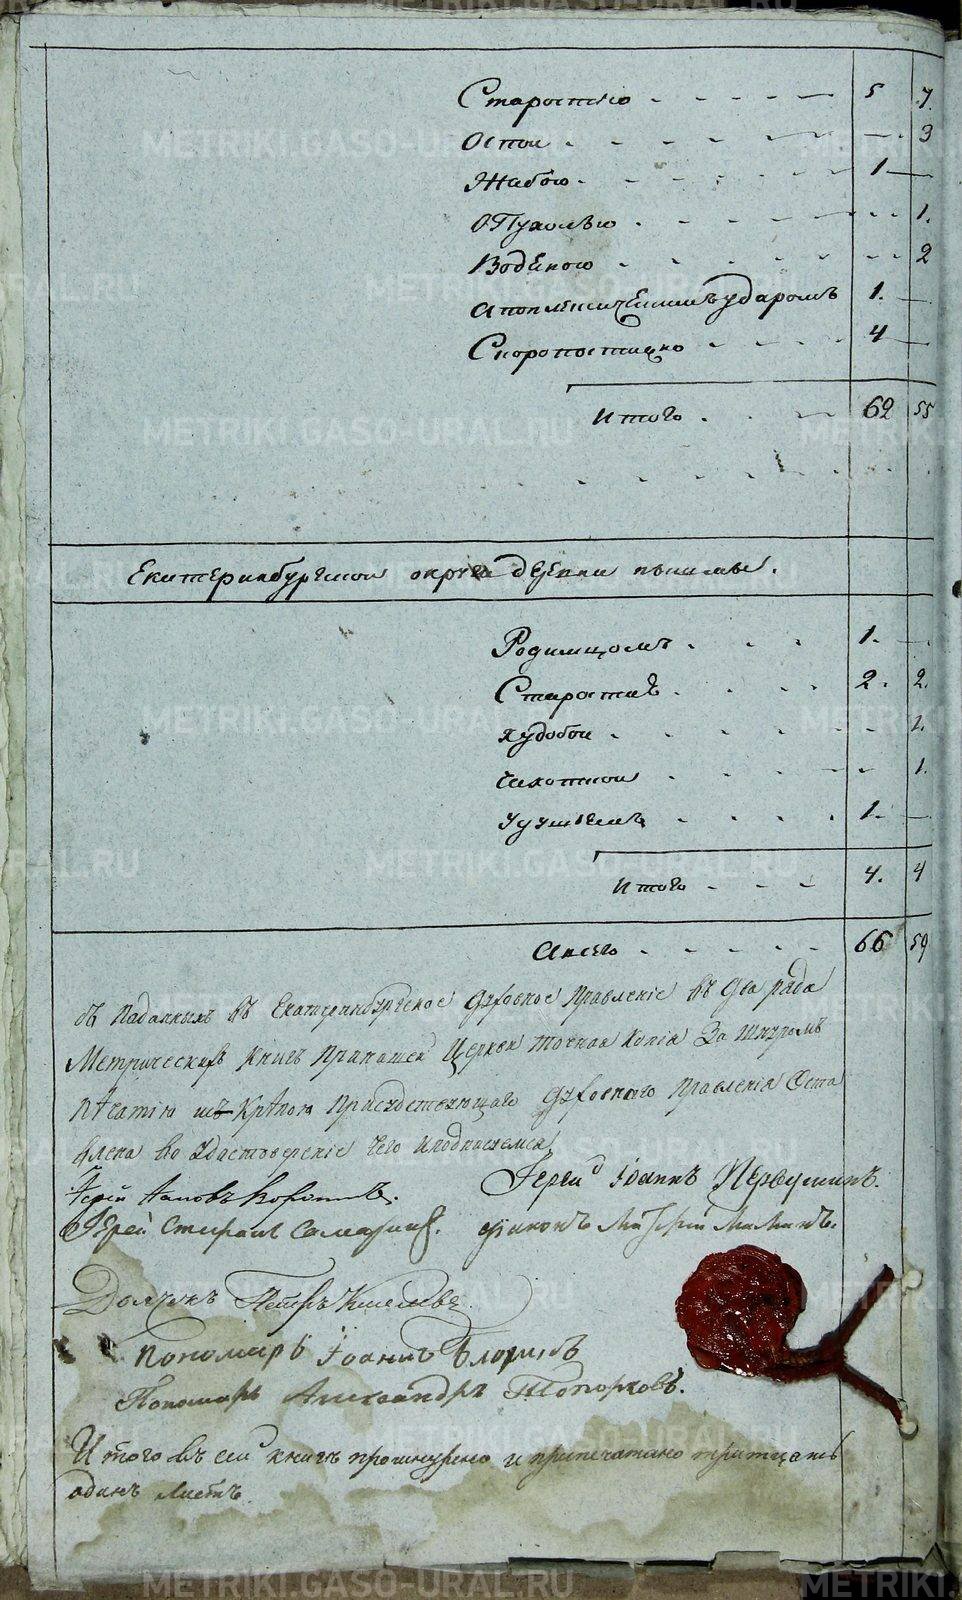 Старостію 5 7.
Оспою 3
Жабою 1
Опухолью 1.
Водяною 2
Апоплексическимъ ударомъ 1.
Скоропостижно 4
Итого 62 55
Екатеринбургской округи деревни
Родимцомъ 1.
Старостію 2. 2.
Худобою 1.
Чахоткою 1.
Удушьемъ 1.
Итого 4. 4
А всего 66 59
Съ Поданныхъ въ Екатеринбургское Духовное Правленіе въ два ряда
Метрическихъ Книгъ При нашей Церкви точная Копія За Шнуромъ
Печатію и Скрѣпою Присудствующаго Духовнаго Правленія Оста
влена Во Удостовереніе чего и подписуемся
Іерей Іерей Іоаннъ Первушинъ.
Іерей Стефанъ Діаконъ
Дьячокъ Петръ Киселевъ
Пономарь Іоаннъ
Пономарь Александръ Топорковъ.
Итого въ сей книгѣ прошнурено и припечатано тритцать
одинъ листъ
METRIKI.GASO-URAL.RU